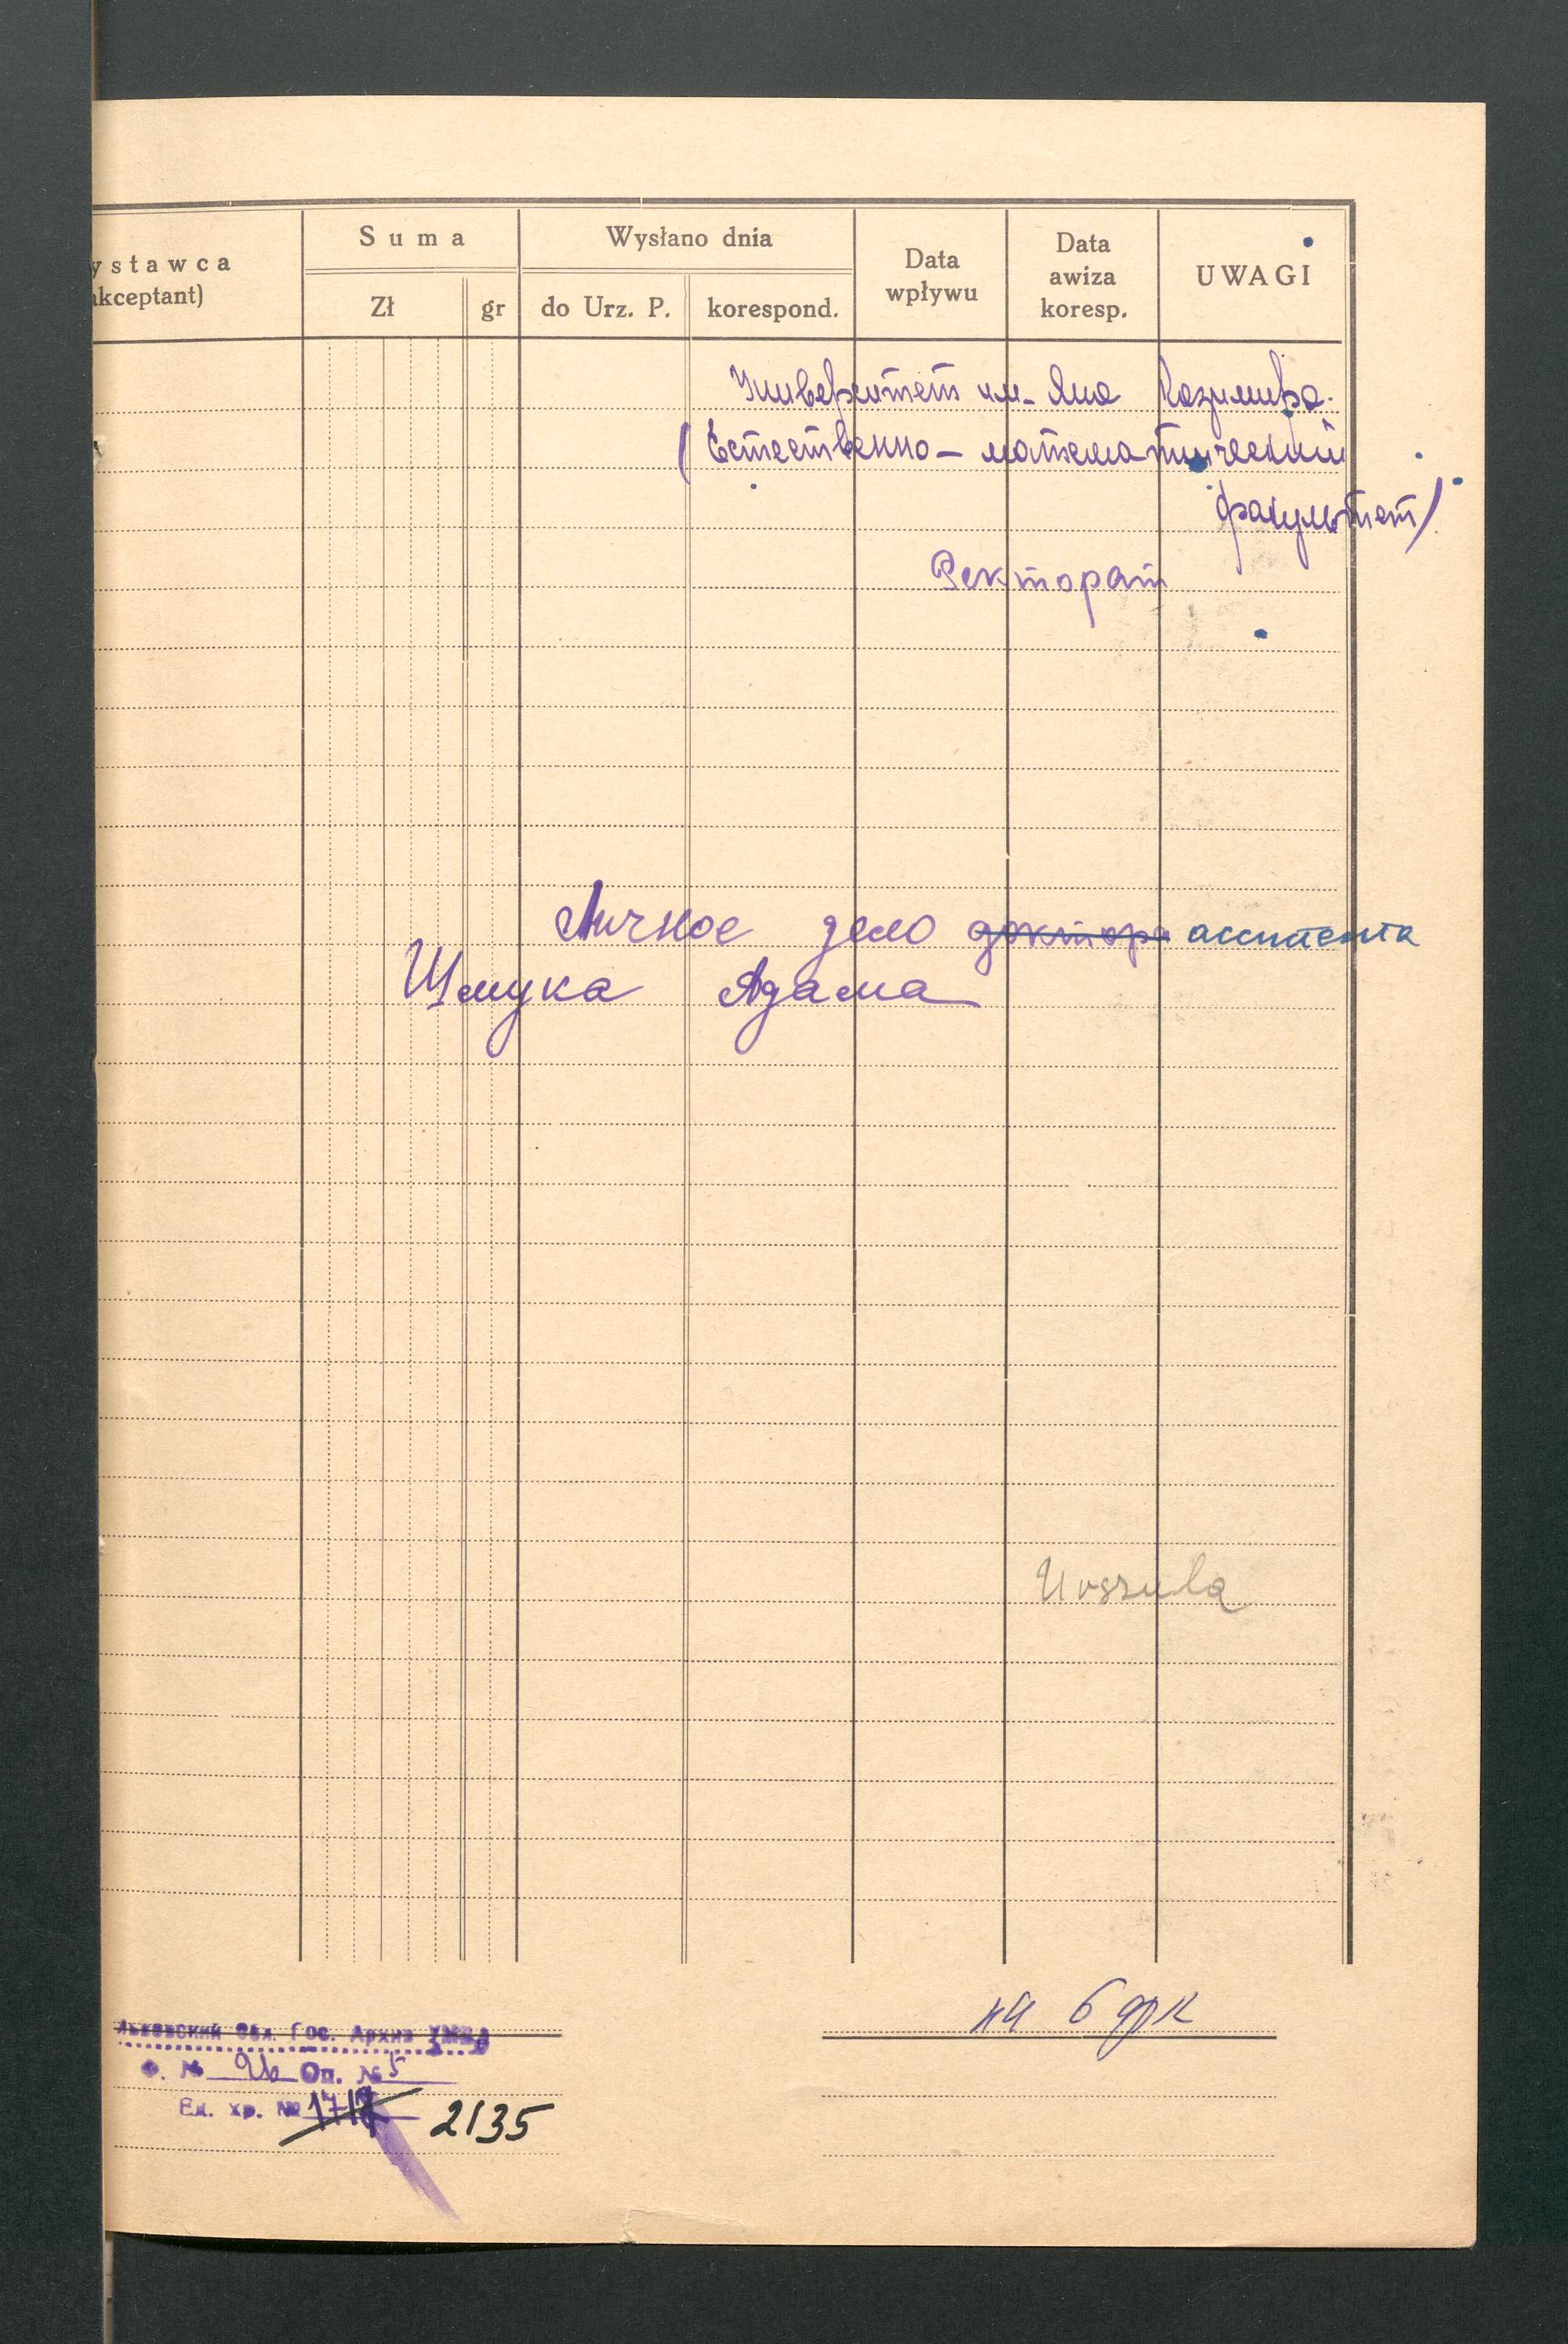 Suma
Wysłano dnia
ystawca
akceptant)
Zł
gr
do Urz. P.
korespond.
Data
wpływu
Data
awiza
koresp.
UWAGI
Университет им. Яна Казимира.
(Естественно-математический
факультет)
Ректорат
Личное дело доктора ассистента
Шмука Адама
Urszula
на 6
Львовский Обл. Гос. Архив
Ф. № 26 Оп. № 5
Ед. хр. № 1717 2135